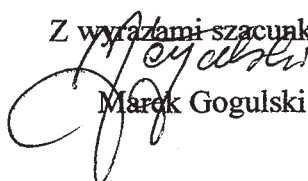 Z wyrazami szacunk
Marek Gogulski